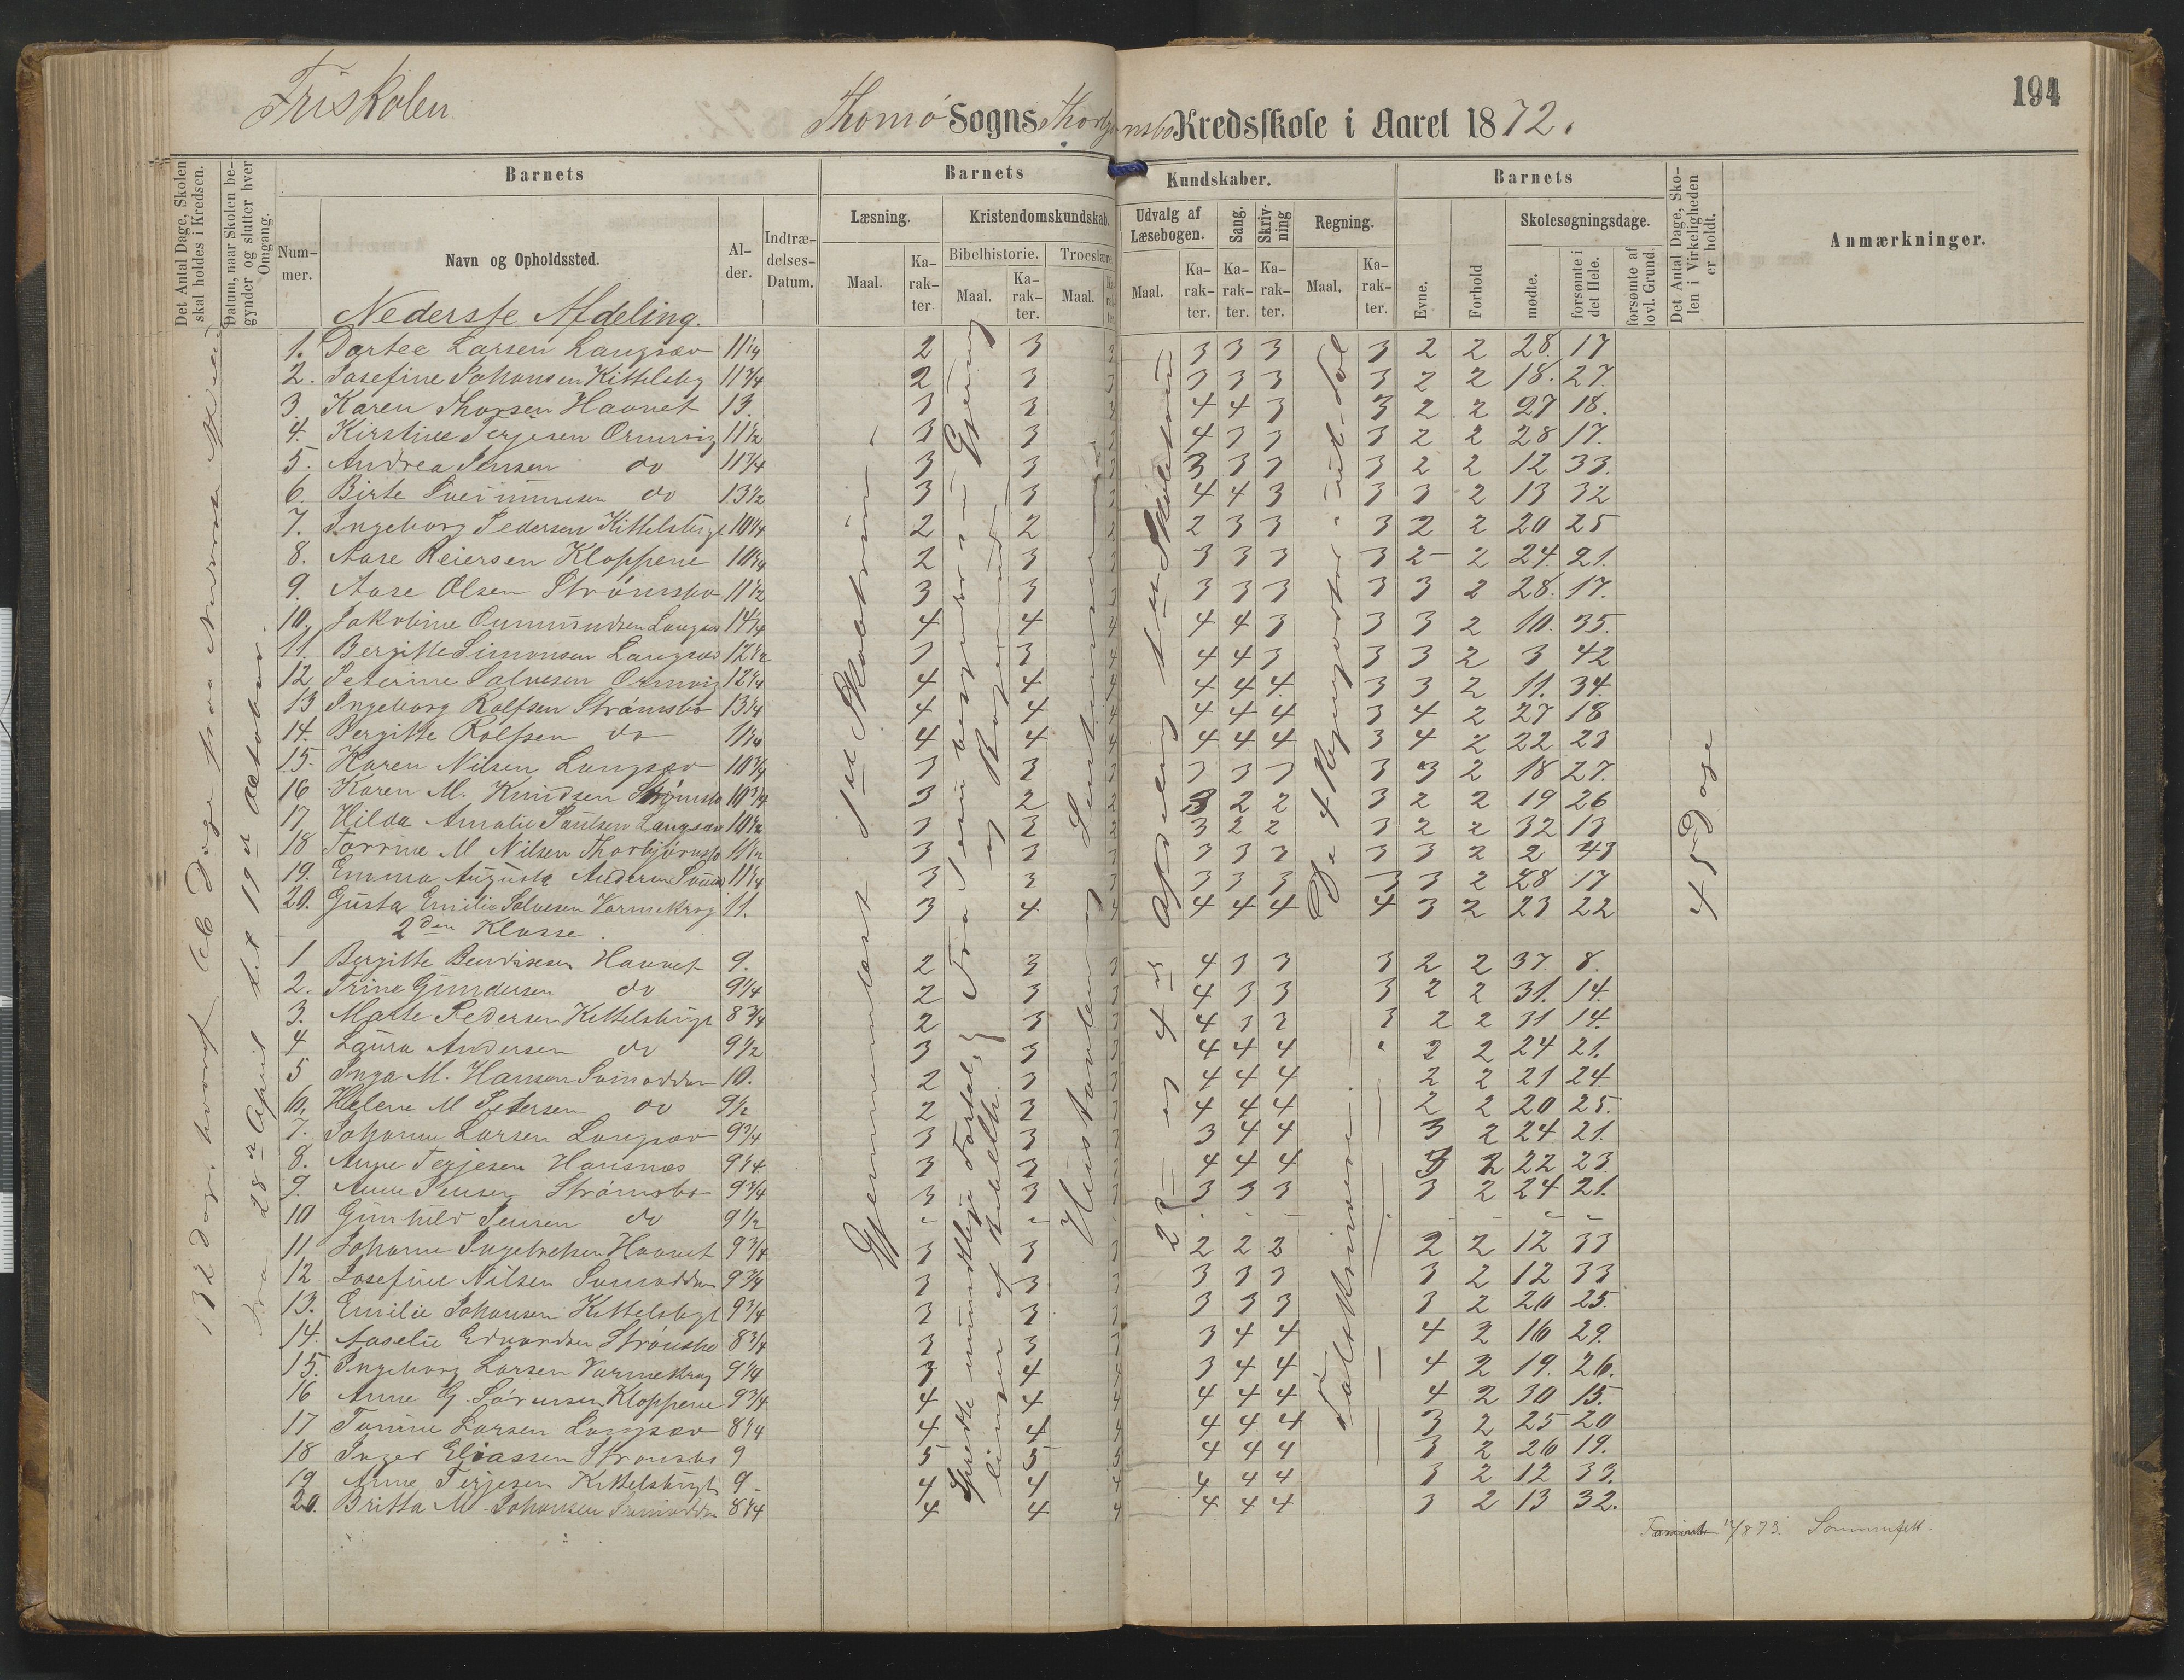 194
Friskolen
Thomø Sogns Thorbjørnsbo Kredsskole i Aaret 1872.
Det Antal Dage, Skolen skal holdes i Kredsen.
Datum, naar Skolen begynder og slutter hver Omgang.
Barnets
Nummer.
Navn og Opholdssted.
Alder.
Indtrædelses-Datum.
Barnets Kundskaber.
Læsning.
Maal.
Karakter
Kristendomskundskab.
Bibelhistorie.
Maal.
Karakter.
Troeslære.
Maal.
Udvalg af Læsebogen.
Maal.
Karakter.
Sang.
Karakter.
Skrivning
Karakter.
Regning.
Maal.
Karakter.
Barnets
Evne.
Forhold
Skolesøgningsdage.
mødte.
forsømte i det Hele.
forsømte af lovl. Grund.
Det Antal Dage, Skolen i Virkeligheden er holdt.
Anmærkninger.
Nederste Afdeling.
1. Dortea Larsen Langsæv 11 1/4 2 3 3 3 3 3 3 2 2 28. 17
2. Josefine Johansen Kittelsby 11 3/4 2 3 3 3 3 3 3 2 2 18. 27.
3. Karen Thorsen Havnet 13. 3 3 3 4 4 3 3 2 2 27 18.
4. Kirstine Terjesen Ormvig 11 1/2 3 3 3 4 3 3 3 2 2 28 17.
5. Andrea Jensen do 11 3/4 3 3 3 3 3 3 3 2 2 12 33.
6. Birte do 13 1/2 3 3 3 4 4 3 3 3 2 13 32
7. Ingeborg Pedersen Kittelsbugt 10 1/4 2 2 2 2 3 3 3 2 2 20 25
8. Aase Reiersen Kloppene 10 3/4 2 3 3 3 3 3 3 2 2 24. 21.
9. Aase Olsen Strømsbo 11 1/2 3 3 3 3 3 3 3 3 2 28. 17.
10. Jakobine Gunmundsen Langsæv 14 1/4 4 4 4 4 4 3 3 3 2 10. 35.
11. Bergitte Simonsen Langsæv 12 1/2 3 3 4 4 4 3 3 3 2 3 42
12 Peterine Salvesen Ormvig 12 1/4 4 4 4 4 4 4. 3 3 2 11. 34.
13 Ingeborg Rolfsen Strømsbo 13 1/4 4 4 4 4 4 4 3 4 2 27 18
14. Bergitte Rolfsen do 11 1/4 4 4 4 4 4 4 3 4 2 22 23
15. Karen Nilsen Langsæv 10 3/4 3 3 3 3 3 3 3 3 2 18 27.
16 Karen M. Knudsen Strømsbo 10 3/4 3 2 2 3 2 2 3 2 2 19 26
17, Hilda Amalie Paulsen Langsæv 10 1/2 3 3 3 3 2 2 3 2 2 32 13
18 Torrine M Nilsen Thorbjørnsbo 11 1/2 3 3 3 3 3 3 3 3 2 2 43
19. Emma Augusta Andersen 11 1/4 3 3 3 3 3 3 3 3 2 28 17
20. Gusta Emilie Salvesen Varmekrog 11. 3 4 4 4 4 4 4 3 2 23 22
2den Klasse.
1 Bergitte Bendixsen Havnet 9. 2 3 3 4 3 3 3 2 2 37. 8.
2. Trine Gundersen do 9 1/4 2 3 3 4 3 3 3 2 2 31. 14.
3. Marte Pedersen Kittelsbugt 8 3/4 2 3 3 4 3 3 3 2 2 31 14.
4 Laura Andersen do 9 1/2 3 3 3 4 4 4 2 2 24 21.
5 Inga M. Hansen Svinodden 10. 2 3 3 4 4 4 2 2 21 24.
6. Helene M Petersen do 9 1/2 2 3 3 4 4 4 2 2 20 25.
7. Johanne Larsen Langsæv 9 3/4 3 3 3 3 4 4 3 2 24 21.
8. Anne Terjesen Hausnæs 9 1/4 3 3 3 4 4 4 3 2 22 23.
9. Anne Jensen Strømsbo 9 3/4 3 3 3 3 3 3 3 2 24 21.
10 Gunhild Jensen do 9 1/2 - - - - - - - - -
11 Johanne Ingebretsen Havnet 9 3/4 3 3 3 2 2 2 2 2 12 33
12 Josefine Nilsen Svinodden 9 3/4 3 3 3 3 3 3 3 2 12 33
13. Emilie Johansen Kittelsbugt 9 3/4 3 3 3 3 3 3 3 2 20 25.
14. Aaselie Edvardsen Strømsbo 8 3/4 3 3 3 3 4 4 4 2 16 29.
15. Ingeborg Larsen Varmekrog 9 1/4 3 4 4 3 4 4 4 2 19. 26.
16 Anne G. Sørensen Kloppene 9 3/4 4 4 4 4 4 4 4 2 30 15.
17 Tomine Larsen Langsæv 8 1/4 4 4 4 4 4 4 3 2 25 20
18 Inger Eliassen Strømsbo 9 5 5 5 4 4 4 3 2 26 19.
19 Anne Terjesen Kittelsbugt 9 - 4 4 4 4 4 4 3 2 12 33.
20. Britta M. Johansen Svinodden 8 1/4 4 4 4 4 4 4 3 2 13 32.
132 dage, hvoraf Dage paa Nederste Afdeling
Fra 28de April til 19de October.
Gjennemlæst 1ste Skoletrin
Fra Jesu begyndte Gjerning og
Spredte mundtlige Fortællinger af Bibelh.
Hustavlen og
2det og 4de Afdeling 1ste Skoletrin
De 4 Regningsarter i uel. Tal
Talskrivere.
45 Dage
12/1873. Sommerfelt.